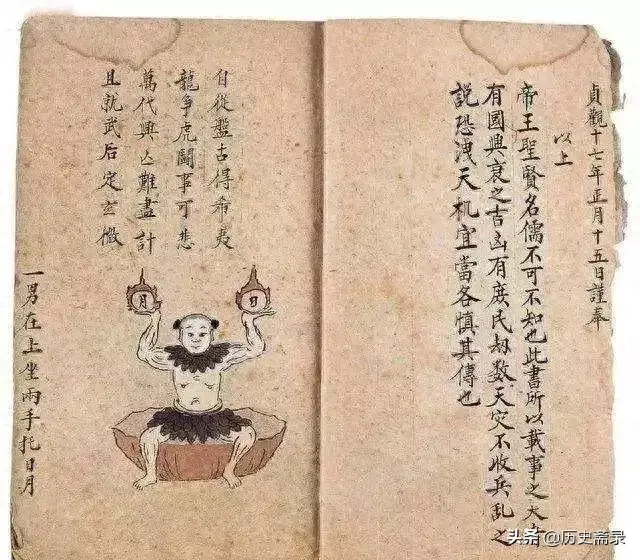 貞觀十七年正月十五日謹奉
以上
帝王聖賢名儒不可不知也此書所以載事之大
有國興衰之吉凶有庶民劫數天灾不收兵亂之
説恐洩天机宜當各慎其傳也
自從盤古得希夷
龍争虎鬪事可悲
萬代興亾難盡計
且就武后定玄微
日
月
一男在上坐兩手托日月
头条 @历史斋录